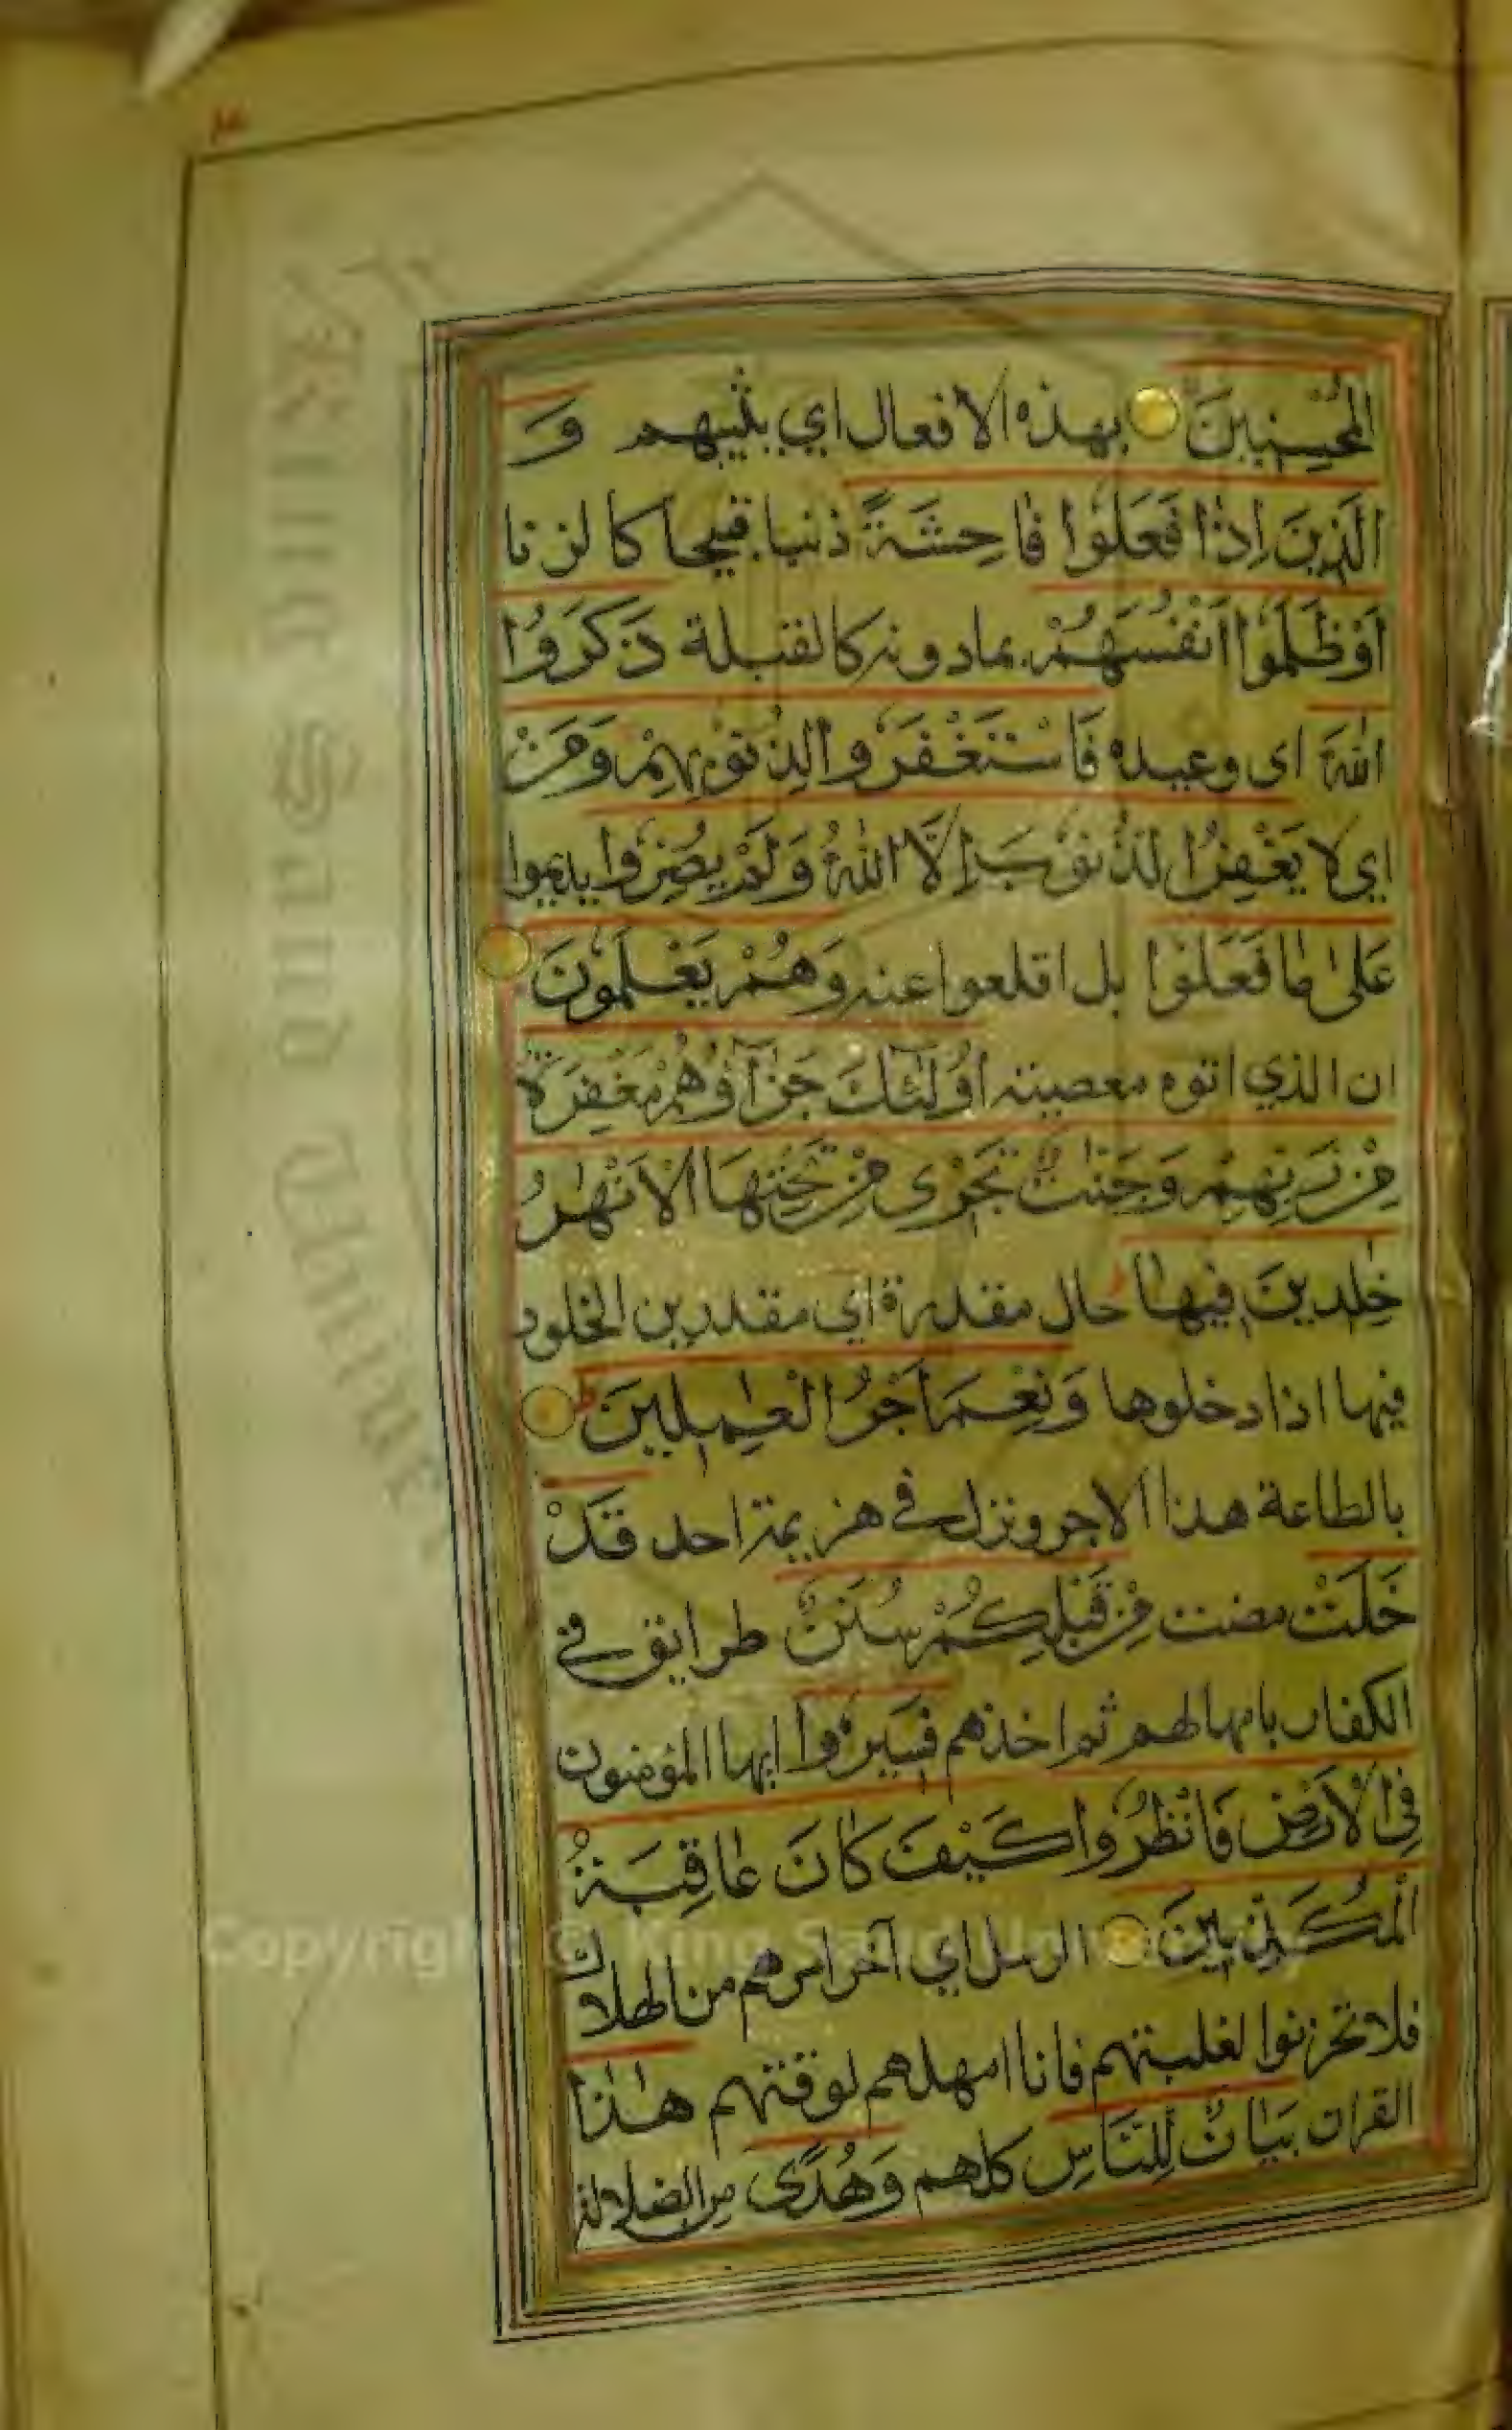 الْمُحْسِنِينَ بهذه الافعال اي يثيبهم وَ
الَّذِينَ اِذَا فَعَلُوا فَاحِشَةً ذنبا قبيحا كالزنا
اَوْ ظَلَمُوا اَنْفُسَهُمْ بمادونه كالقبلة ذَكَرُوا
اللهَ اى وعيده فَاسْتَغْفَرُوا لِذُنُوبِهِمْ وَمَنْ
اي لا يَغْفِرُ الذُّنُوبَ اِلَّا اللهُ وَلَمْ يُصِرُّوا يديموا
عَلٰى مَا فَعَلُوا بل اقلعوا عنه وَهُمْ يَعْلَمُونَ
ان الذي اتوه معصيته اُولٰئِكَ جَزَآؤُهُمْ مَغْفِرَةٌ
مِنْ رَبِّهِمْ وَجَنّٰتٌ تَجْرِى مِنْ تَحْتِهَا الْاَنْهٰرُ
خٰلِدِينَ فِيهَا حال مقدرة اي مقدرين الخلود
فيها اذا دخلوها وَنِعْمَ اَجْرُ الْعٰمِلِينَ
بالطاعة هذا الاجر ونزل في هزيمة احد قَدْ
خَلَتْ مضت مِنْ قَبْلِكُمْ سُنَنٌ طرايق في
الكفار بامهالهم ثم اخذهم فَسِيرُوا ايها المؤمنون
فِى الْاَرْضِ فَانْظُرُوا كَيْفَ كَانَ عَاقِبَةُ
الْمُكَذِّبِينَ الرسل اي آخر امرهم من الهلاك
فلا تحزنوا لغلبتهم فانا امهلهم لوقتهم هٰذَا
القران بَيَانٌ لِلنَّاسِ كلهم وَهُدًى من الضلالة
Copyright © King Saud University
King Saud University